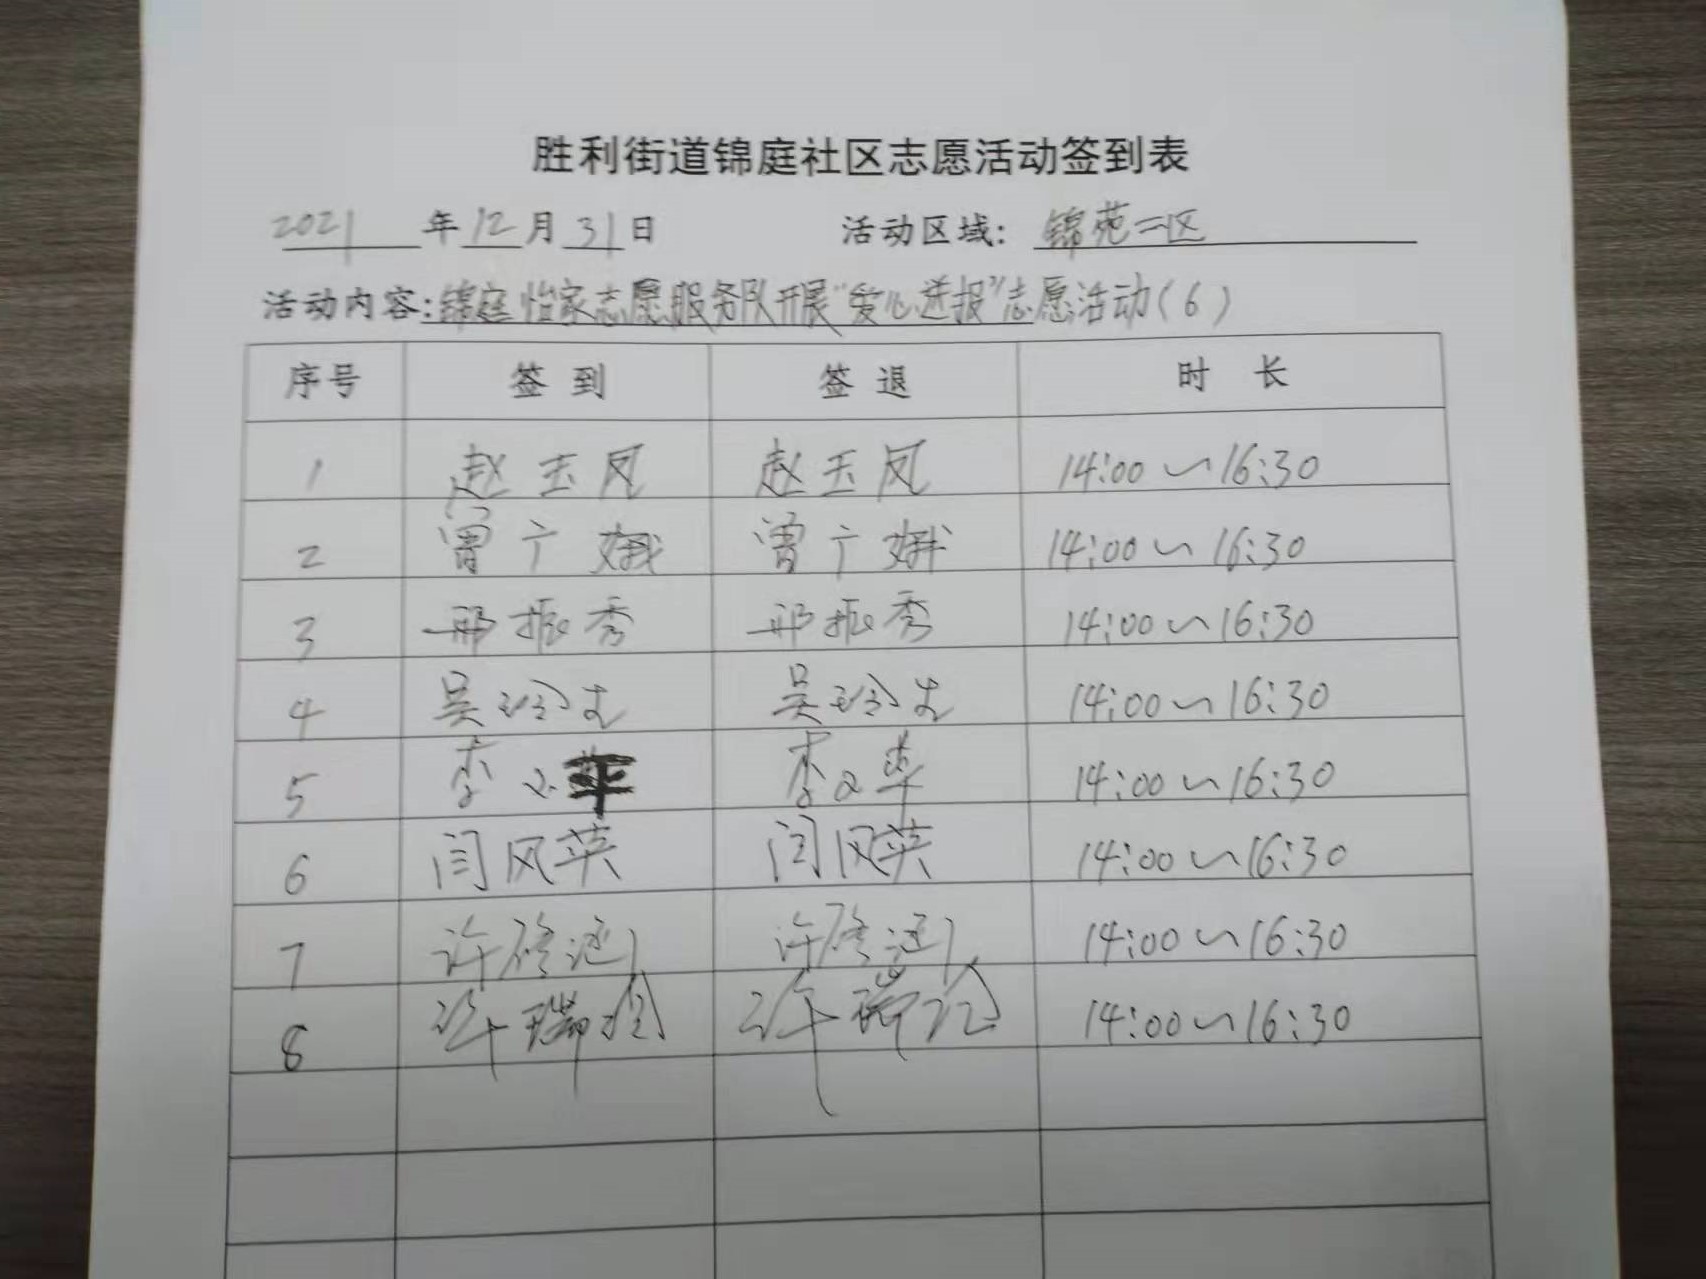 胜利街道锦庭社区志愿活动签到表
2021 年 12 月 31 日 活动区域: 锦苑二区
活动内容:锦庭怡家志愿服务队开展“爱心送报”志愿活动(6)
序号 签到 签退 时 长
1 赵玉凤 赵玉凤 14:00~16:30
2 曾广娥 曾广娥 14:00~16:30
3 邢振秀 邢振秀 14:00~16:30
4 吴玲 吴玲 14:00~16:30
5 李 李 14:00~16:30
6 闫风英 闫风英 14:00~16:30
7 许 许 14:00~16:30
8 许瑞 许瑞 14:00~16:30